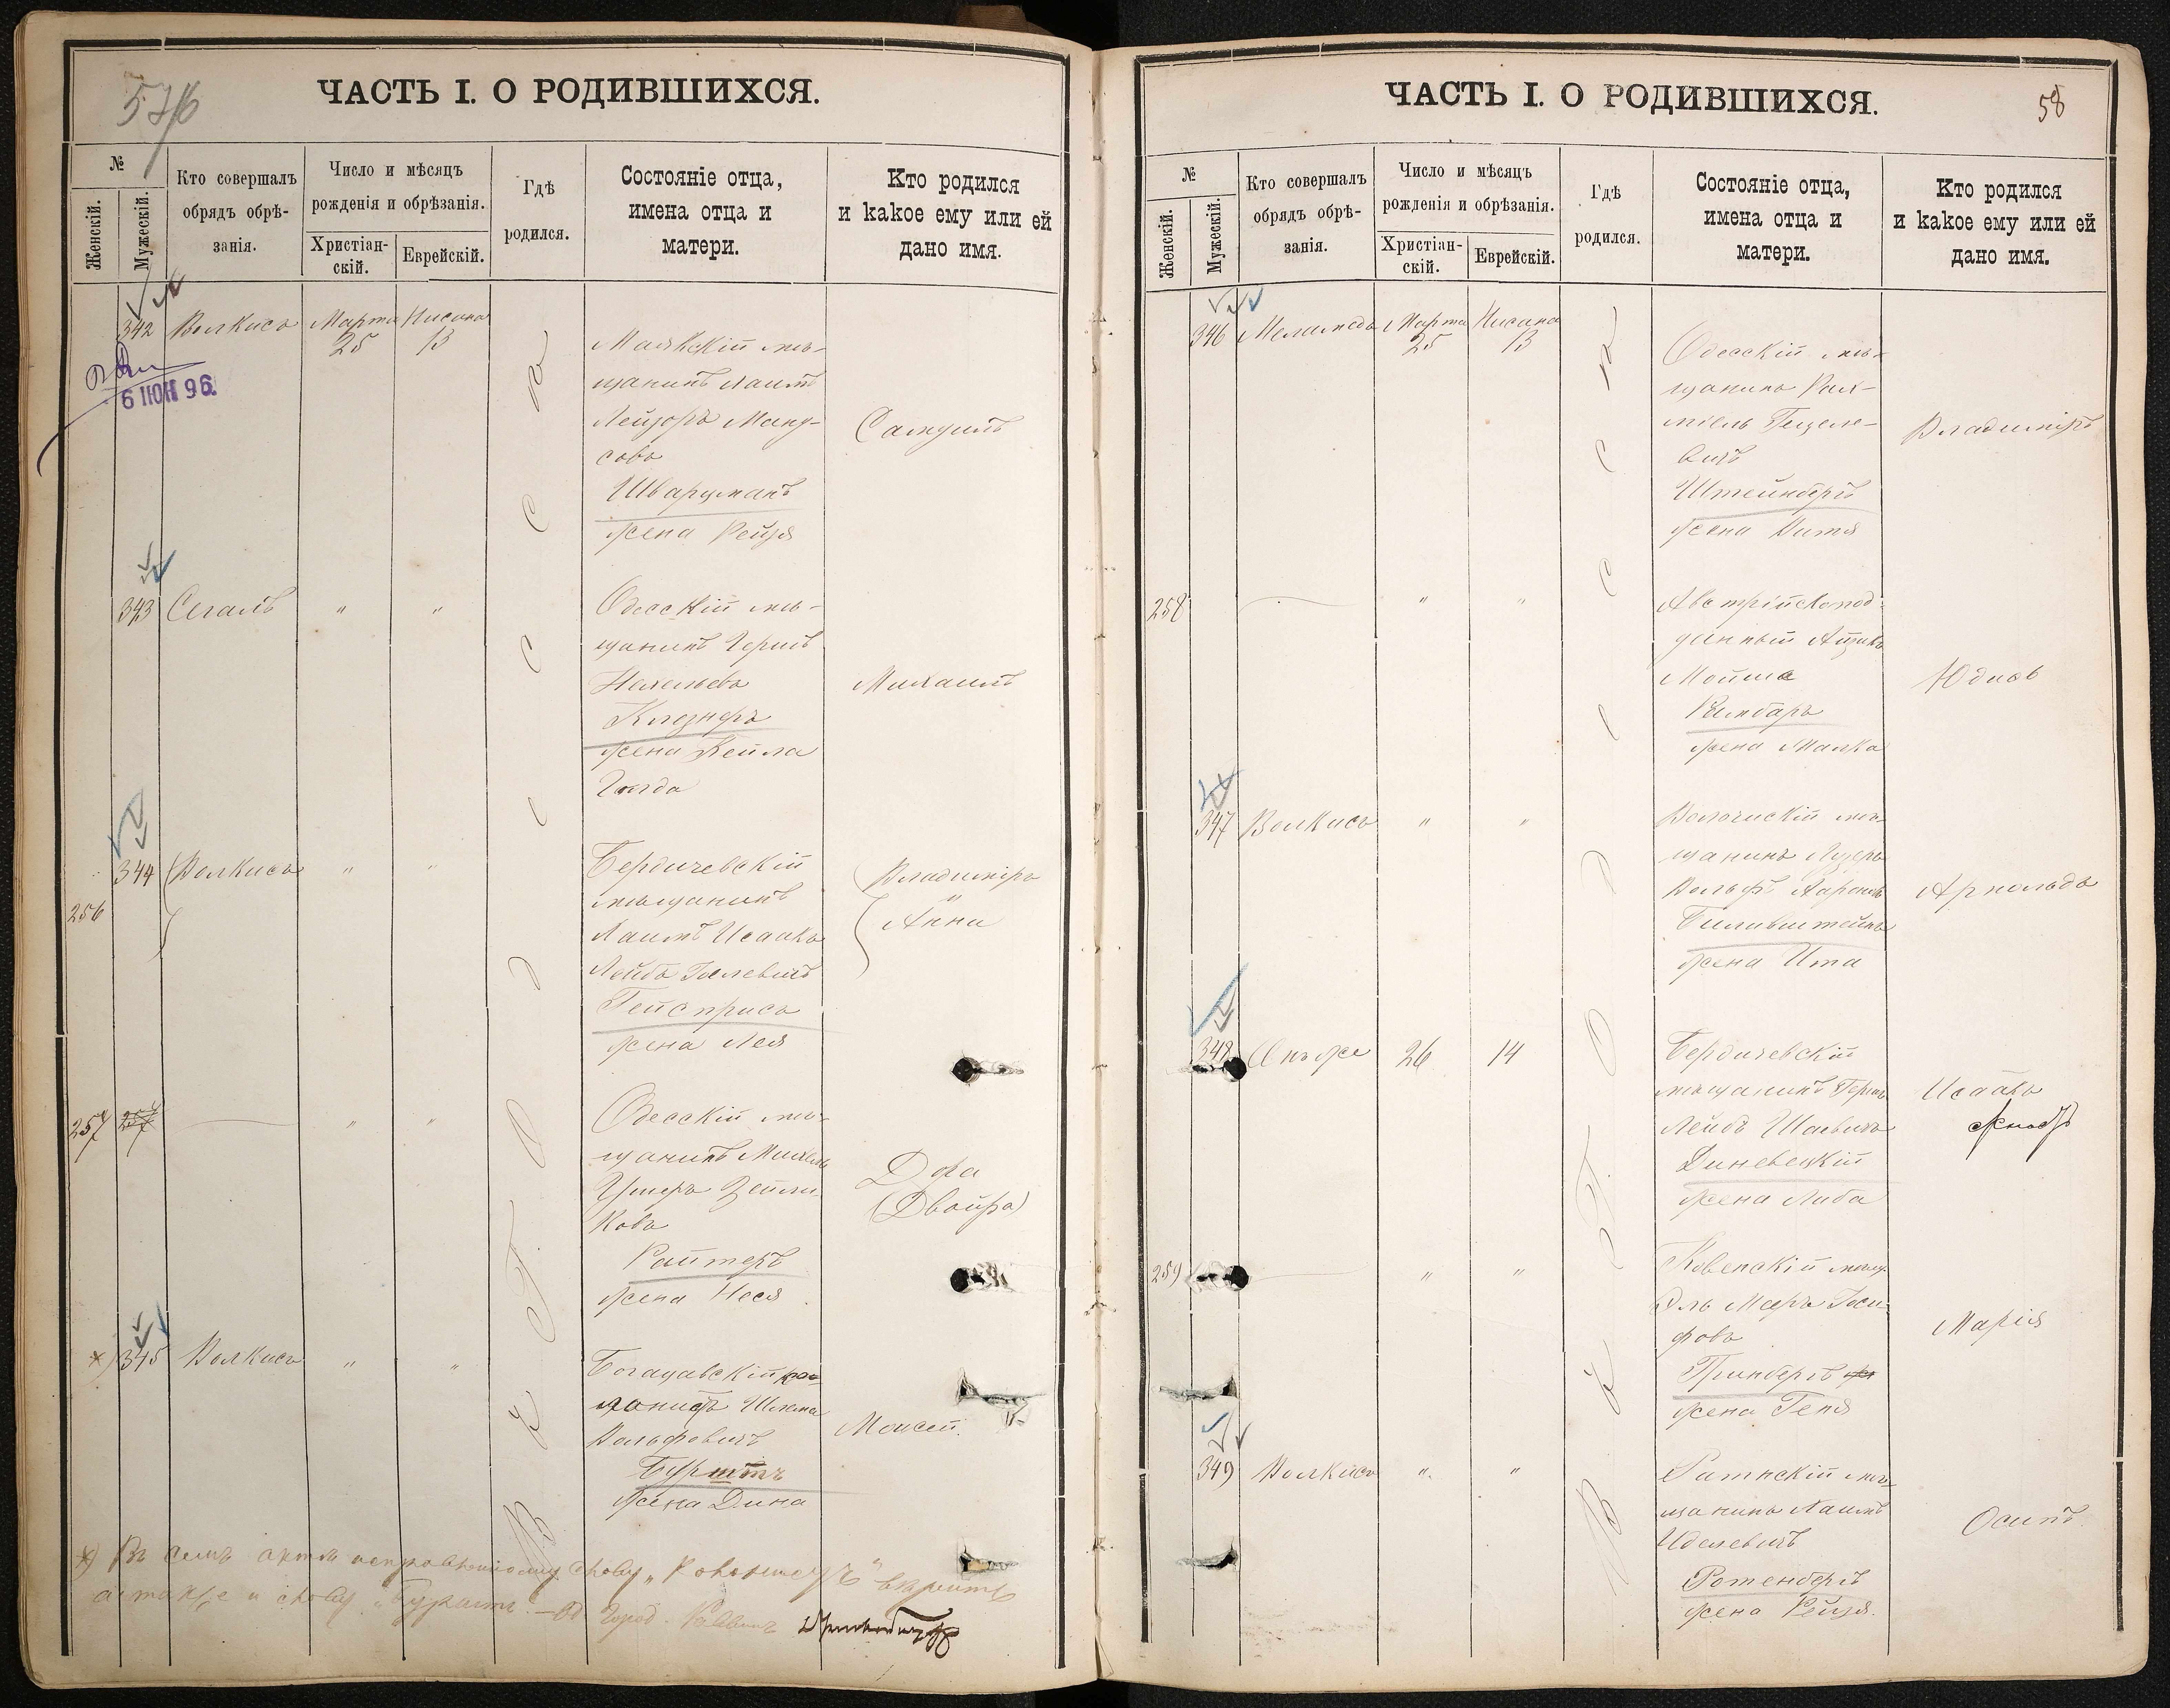 57/б
ЧАСТЬ I. О РОДИВШИХСЯ.
№
Женскій.
Мужескій.
Кто совершалъ
обрядъ обрѣ-
занія.
Число и мѣсяцъ
рожденія и обрѣзанія.
Христіан-
скій.
Еврейскій.
Гдѣ
родился.
Состояніе отца,
имена отца и
матери.
Кто родился
и какое ему или ей
дано имя.
342 Волкисъ Марта 25 Нисана 13
6 ІЮН 96.
Маякскій мѣ-
щанинъ Хаимъ
Лейзоръ Ману-
совъ
Шварцманъ
жена Рейзя
Самуилъ
343 Сегалъ " "
Одесскій мѣ-
щанинъ Гершъ
Нахельевъ
Клезнеръ
жена Бейла
Голда
Михаилъ
344 Волкисъ " "
256
Бердичевскій
мѣщанинъ
Хаимъ Исаакъ
Лейбъ
Гейсприсъ
жена Лея
Владиміръ
"
Анна
257 257 — " "
Одесскій мѣ-
щанинъ Михель
Ушеръ Зейли-
ковъ
Райтеръ
жена Неся
Дора
(Двойра)
*) 345 Волкисъ " "
Богачавскій ко-
лонистъ Шлема
Вольфовичъ
Бурштъ
жена Дина
Моисей.
Въ г. Одессѣ
*) Въ семъ актѣ исправленному слову „Колонистъ" вѣрить
а также и слову „Бурштъ".— Од. Город. Раввинъ
58
ЧАСТЬ I. О РОДИВШИХСЯ.
№
Женскій.
Мужескій.
Кто совершалъ
обрядъ обрѣ-
занія.
Число и мѣсяцъ
рожденія и обрѣзанія.
Христіан-
скій.
Еврейскій.
Гдѣ
родился.
Состояніе отца,
имена отца и
матери.
Кто родился
и какое ему или ей
дано имя.
346 Меламедъ Марта 25 Нисана 13
Одесскій мѣ-
щанинъ Рах-
міель Гецеле-
вичъ
Штейнбергъ
жена Хитя
Владиміръ
258 — " "
Австрійскопод-
данный Айзикъ
Мойше
жена Малка
Юдись
347 Волкисъ " "
Волочискій мѣ-
щанинъ Лузеръ
Вольфъ Ааронъ
жена Ита
Арнольдъ
348 Онъ же 26 14
Бердичевскій
мѣщанинъ Гершъ
Лейбъ Шаевичъ
Диневецкій
жена Либа
Исаакъ
259 — " "
Ковенскій мѣщ.
Эль Мееръ Іоси-
фовъ
Гринбергъ
жена Геня
Марія
349 Волкисъ " "
Ратнскій мѣ-
щанинъ Хаимъ
Иделевичъ
Ротенбергъ
жена Рейзя.
Осипъ.
Въ г. Одессѣ